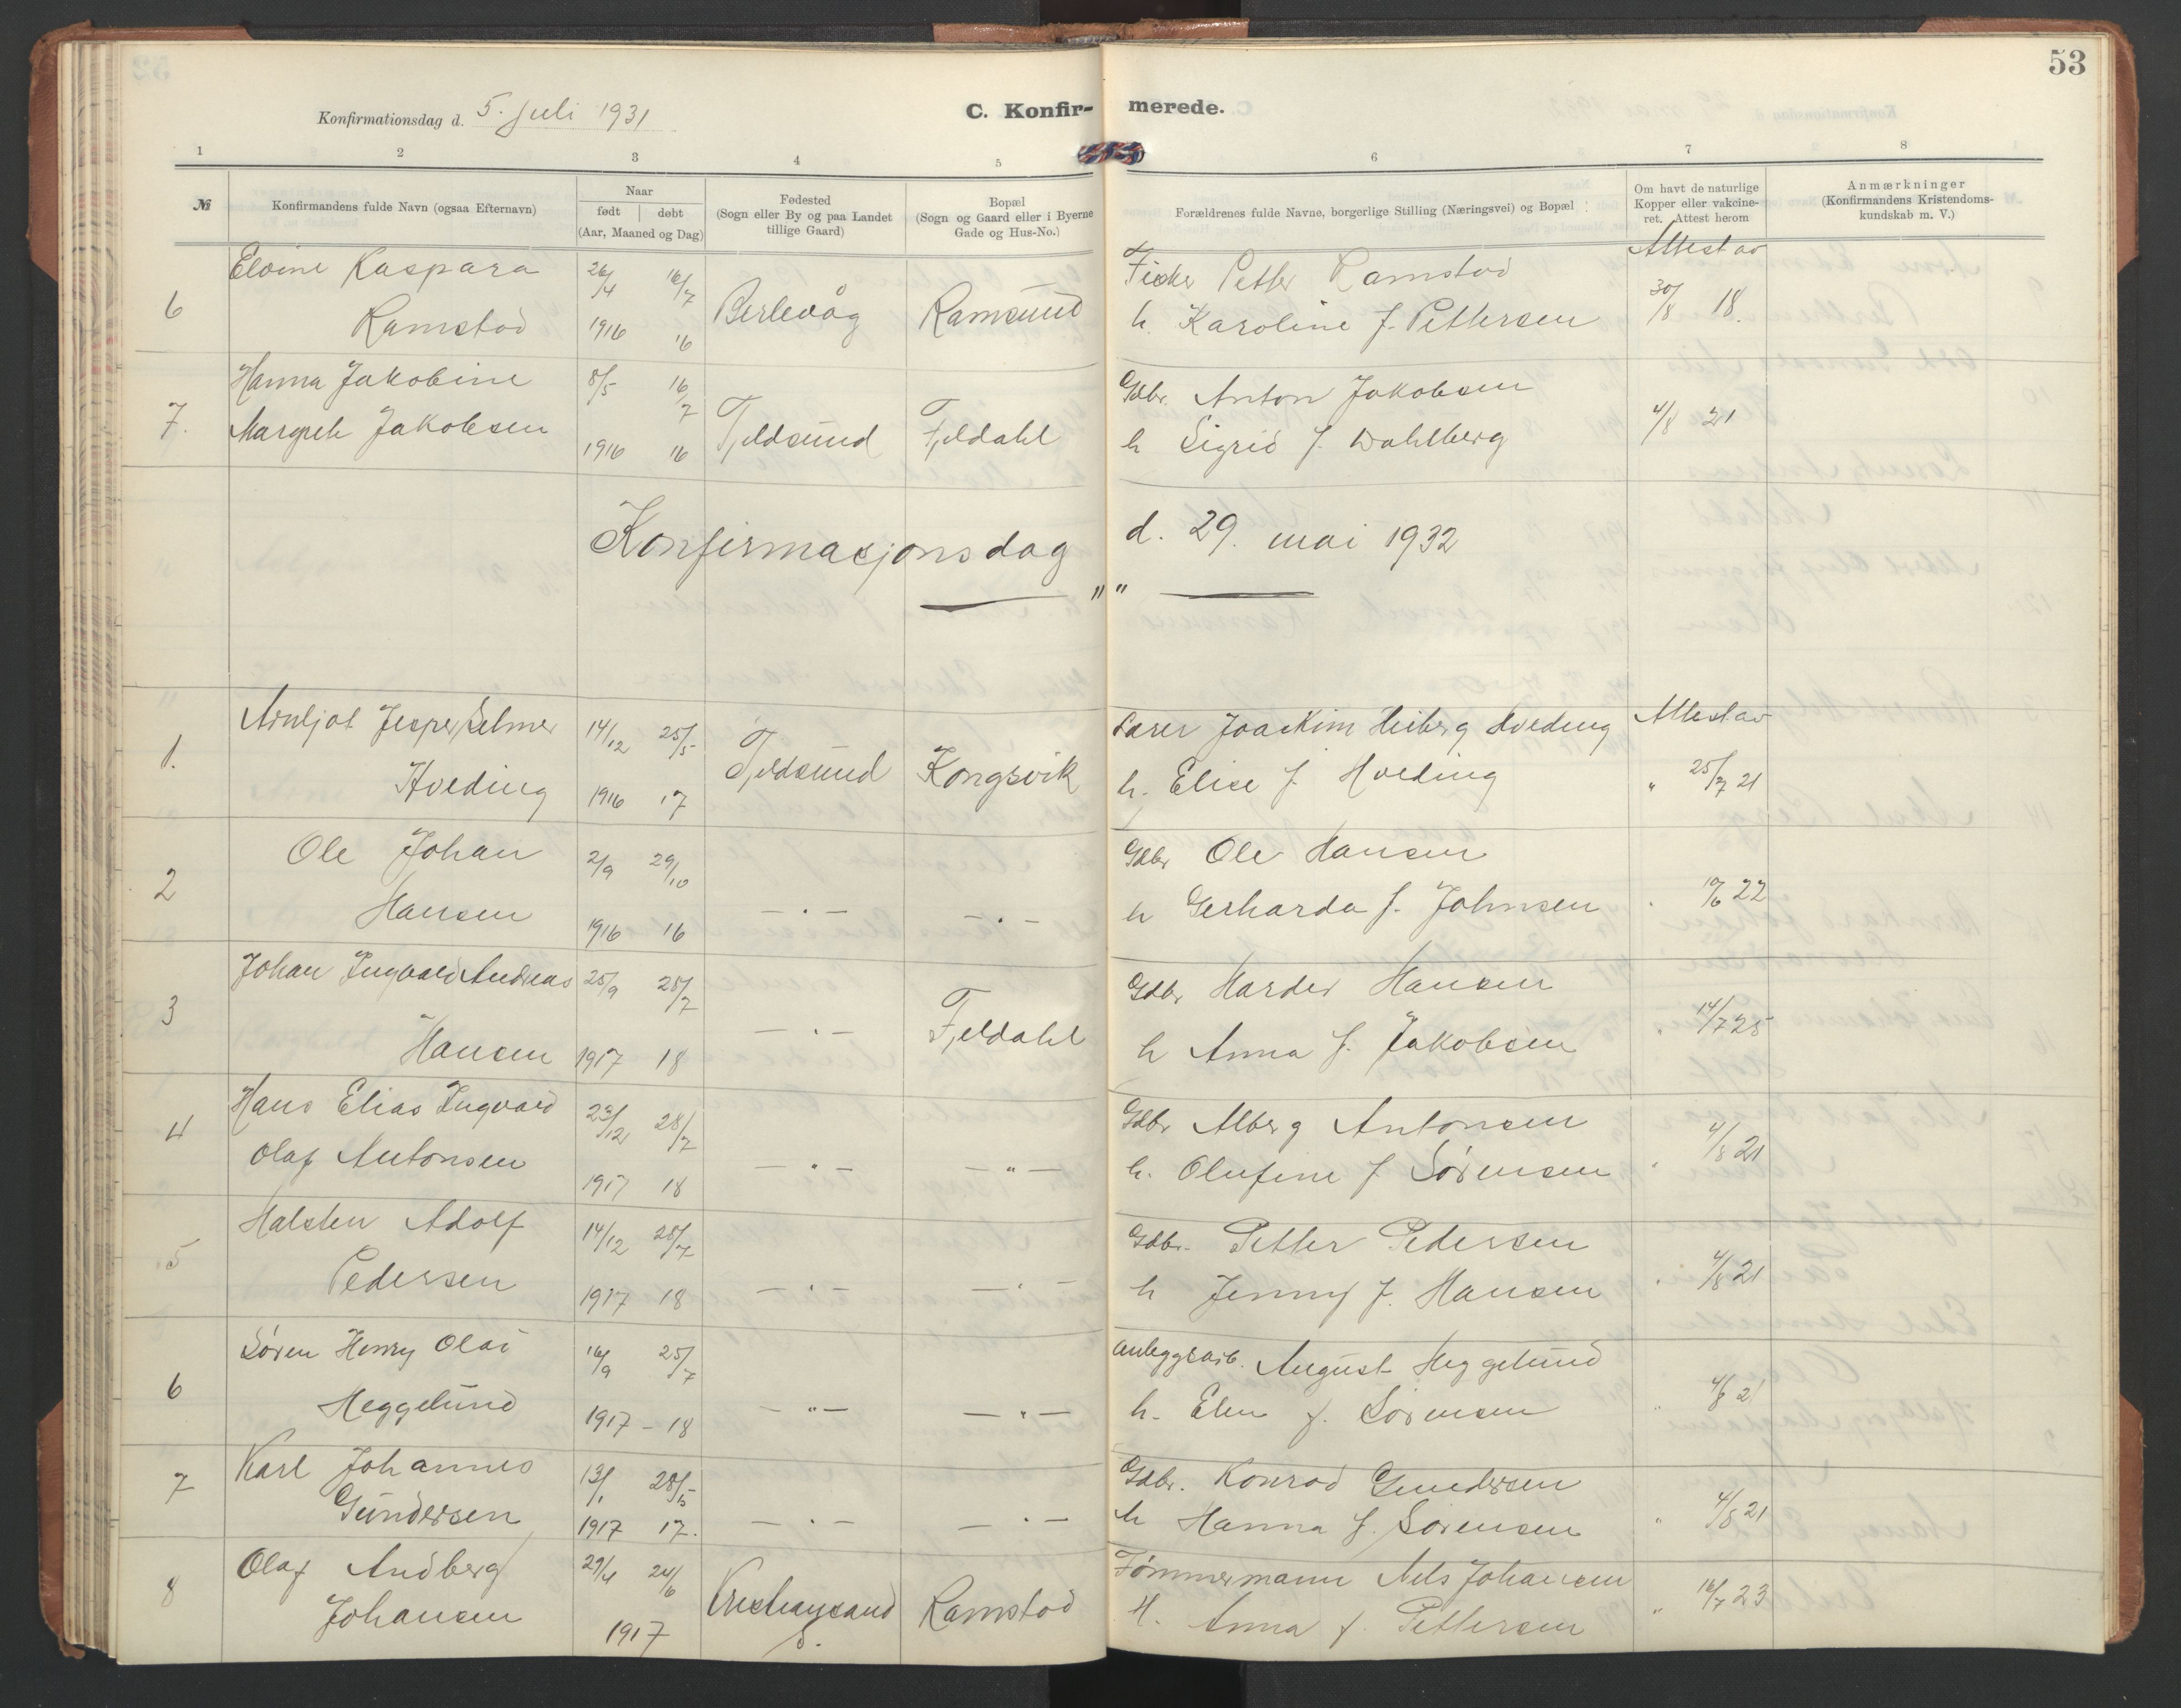 53
Konfirmationsdag d. 5. juli 1931
C. Konfir- merede.
1 2 3 4 5 6 7 8
№
Konfirmandens fulde Navn (ogsaa Efternavn)
Naar
født døbt
(Aar, Maaned og Dag)
Fødested
(Sogn eller By og paa Landet
tillige Gaard)
Bopæl
(Sogn og Gaard eller i Byerne
Gade og Hus-No.)
Forældrenes fulde Navne, borgerlige Stilling (Næringsvei) og Bopæl
Om havt de naturlige
Kopper eller vakcine-
ret. Attest herom
Anmærkninger
(Konfirmandens Kristendoms-
kundskab m. V.)
Elvine Kaspara 26/4 16/7 Fisker Petter Ramstad Attest av
6 Ramstad 1916 16 Berlevåg Ramsund h. Karoline f. Pettersen 30/8 18.
Hanna Jakobine 8/5 16/7 Gdbr. Anton Jakobsen
7. Margreth Jakobsen 1916 16 Tjeldsund Fjeldahl h Sigrid f. Wahlberg 4/8 21
Konfirmasjonsdag d. 29. mai 1932
" "
Arnljot Jesper Selmer 14/12 25/5 Lærer Joackim Heiberg Hveding Attest av
1. Hveding 1916 17 Tjeldsund Kongsvik h. Elise f. Hveding " 25/7 21
Ole Johan 2/9 29/10 Gdbr Ole Hansen
2 Hansen 1916 16 — . — — . — h Gerharda f. Johnsen 22
Johan Ingvald Andreas 25/9 28/7 Gdbr Harder Hansen
3 Hansen 1917 18 — . — Fjeldahl h Anna f. Jakobsen " 14/7 25
Hans Elias Ingvard 23/12 28/7 Gdbr Alberg Antonsen
4 Olaf Antonsen 1917 18 — . — — " — h. Olufine f Sörensen " 4/8 21
Halsten Adolf 14/12 28/7 Gdbr. Petter Pedersen
5 Pedersen 1917 18 — . — — . — h Jenny f. Hansen " 4/8 21
Sören Henry Olai 16/9 25/7 anleggsarb. August Heggelund
6 Heggelund 1917 – 18 — " — — " — h. Elen f. Sörensen " 4/8 21
Karl Johannes 13/1 28/5 Gdbr. Konrad Gundersen
7 Gundersen 1917 17. — . — — . — h Hanna f. Sörensen " 4/8 21
Olaf Andberg 29/4 24/6 Tömmermann Nels Johansen
8 Johansen 1917 Kristiansand S. Ramstad H. Anna f. Pettersen " 16/7 23